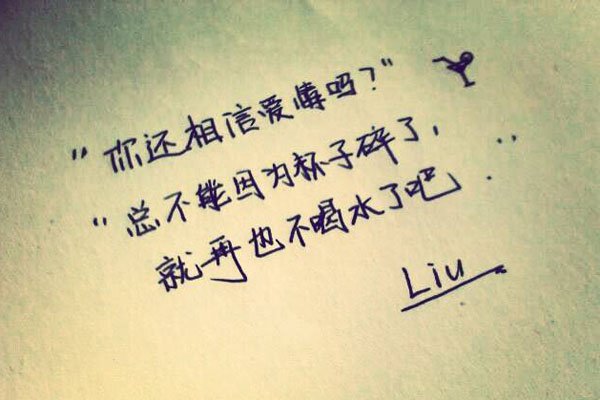 "你还相信爱情吗？"
"总不能因为杯子碎了，
就再也不喝水了吧..
Liu